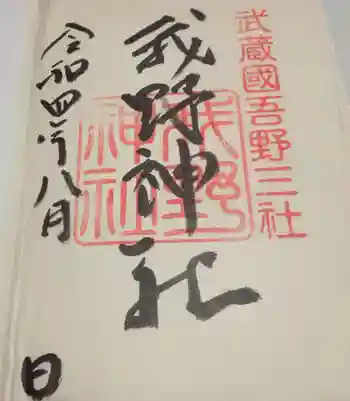 武蔵國吾野三社
我野神社
我野
神社
令和四年八月
日